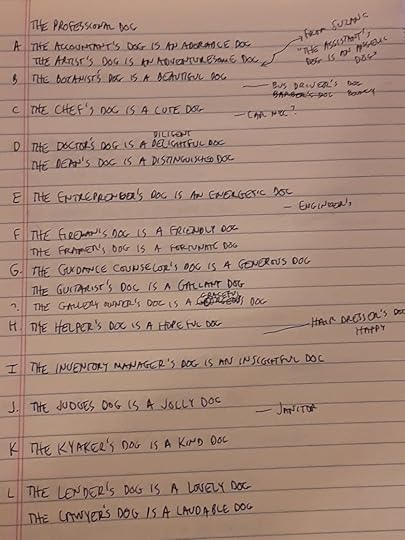 THE PROFESSIONAL DOG
FROM SUZANC
A THE ACCOUNTANT'S DOG IS AN ADORABLE DOG
"THE ASSISTANT'S
THE ARTIST'S DOG IS AN ADVENTURESOME DOG
DOG IS AN ANGELIC
DOG"
B THE BOTANIST'S DOG IS A BEAUTIFUL DOG
— BUS DRIVER'S DOG
BARBER'S DOG BOUNCY
C THE CHEF'S DOG IS A CUTE DOG
— CAR MEC?
DILIGENT
D THE DOCTOR'S DOG IS A DELIGHTFUL DOG
THE DEAN'S DOG IS A DISTINGUISHED DOG
E THE ENTREPRENEER'S DOG IS AN ENERGETIC DOG
— ENGINEER'S
F THE FIREMAN'S DOG IS A FRIENDLY DOG
THE FRAMER'S DOG IS A FORTUNATE DOG
G. THE GUIDANCE COUNSELOR'S DOG IS A GENEROUS DOG
THE GUITARIST'S DOG IS A GALLANT DOG
GRACEFUL
?. THE GALLERY OWNER'S DOG IS A DOG
H. THE HELPER'S DOG IS A HOPEFUL DOG
— HAIR DRESSER'S DOG
HAPPY
I THE INVENTORY MANAGER'S DOG IS AN INSIGHTFUL DOG
J. THE JUDGES DOG IS A JOLLY DOG
— JANITOR
K THE KYAKER'S DOG IS A KIND DOG
L THE LENDER'S DOG IS A LOVELY DOG
THE LAWYER'S DOG IS A LAUDABLE DOG